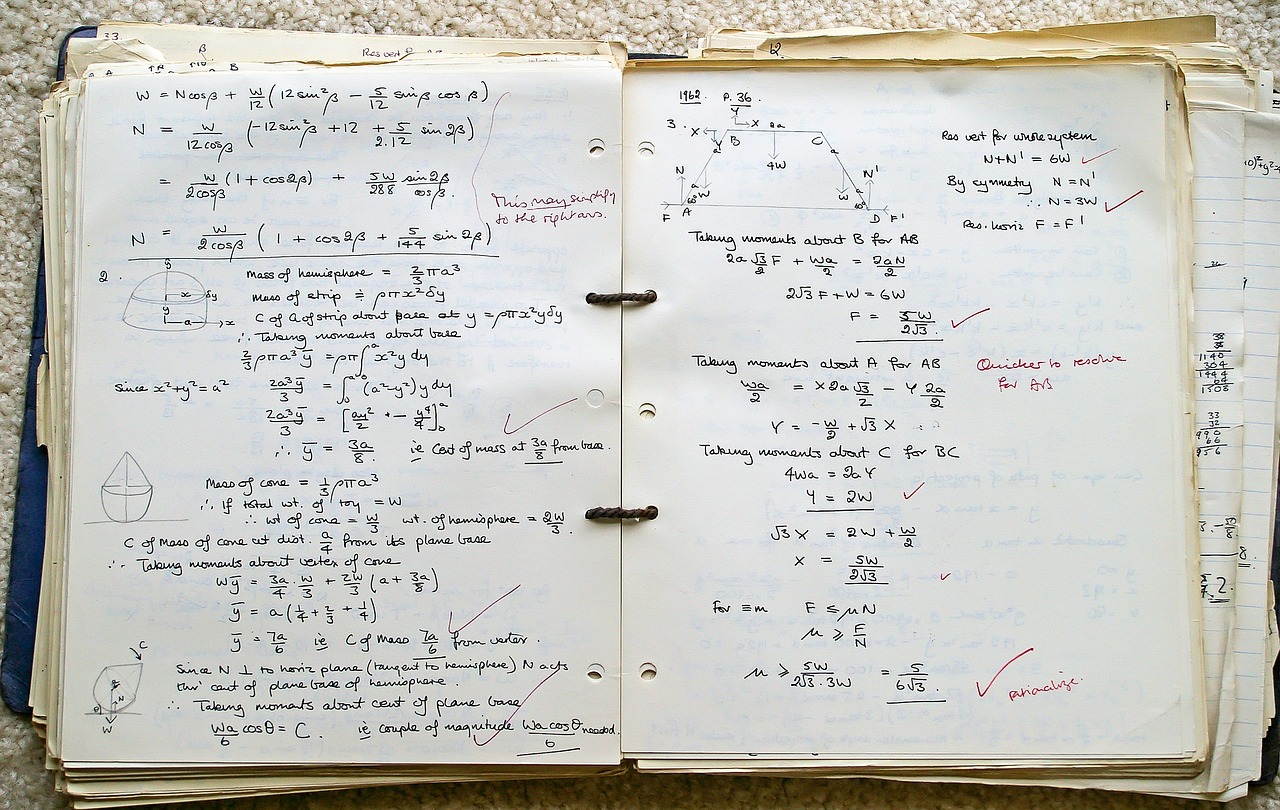 33.
β
Res vert
A
B
W = N cos β + W/12 (12 sin²β − 5/12 sin β cos β)
N = W/12cosβ (−12 sin²β + 12 + 5/2.12 sin 2β)
= W/2cosβ (1 + cos 2β) + 5W/288 sin 2β/cos β.
This may simplify
to the right ans.
N = W/2cosβ (1 + cos 2β + 5/144 sin 2β)
2.
y
x
δy
y
a
x
Mass of hemisphere = 2/3 πa³
Mass of strip ≑ ρπx²δy
C of G of strip about base at y = ρπx²yδy
∴ Taking moments about base
2/3 ρπa³ȳ = ρπ∫₀ᵃ x²y dy
Since x²+y² = a²
2a³ȳ/3 = ∫₀ᵃ (a²−y²) y dy
2a³ȳ/3 = [ay²/2 − y⁴/4]₀ᵃ
∴ ȳ = 3a/8 ie Cent of mass at 3a/8 from base.
Mass of cone = 1/3 ρπa³
∴ If total wt. of toy = W
∴ wt of cone = W/3 wt. of hemisphere = 2W/3.
C of Mass of cone at dist. a/4 from its plane base
∴ Taking moments about vertex of cone
Wȳ = 3a/4 · W/3 + 2W/3 (a + 3a/8)
ȳ = a(1/4 + 2/3 + 1/4)
ȳ = 7a/6 ie C of Mass 7a/6 from vertex.
C
N
θ
W
Since N ⊥ to horiz plane (tangent to hemisphere) N acts
thro' cent of plane base of hemisphere.
∴ Taking moments about cent of plane base
Wa/6 cosθ = C. ie couple of magnitude Wa cosθ/6 needed.
12.
1962. P. 36.
3.
Y
X 2a
X B C
a
Y
4W
N a W
W a N'
60°
60°
F A D F'
Res vert for whole system
N+N' = 6W
By symmetry N = N'
∴ N = 3W
Res. horiz F = F'
Taking moments about B for AB
2a √3/2 F + Wa/2 = 2aN/2
2√3 F + W = 6W
F = 5W/2√3.
Taking moments about A for AB
Quicker to resolve
for AB
Wa/2 = X 2a √3/2 − Y 2a/2
Y = −W/2 + √3 X
Taking moments about C for BC
4Wa = 2aY
Y = 2W
√3 X = 2W + W/2
X = 5W/2√3
For ≡m F ≤ μN
μ ≥ F/N
μ ≥ 5W/2√3.3W = 5/6√3.
rationalize.
38
38
1140
304
1444
64
1508
33
32
990
66
956